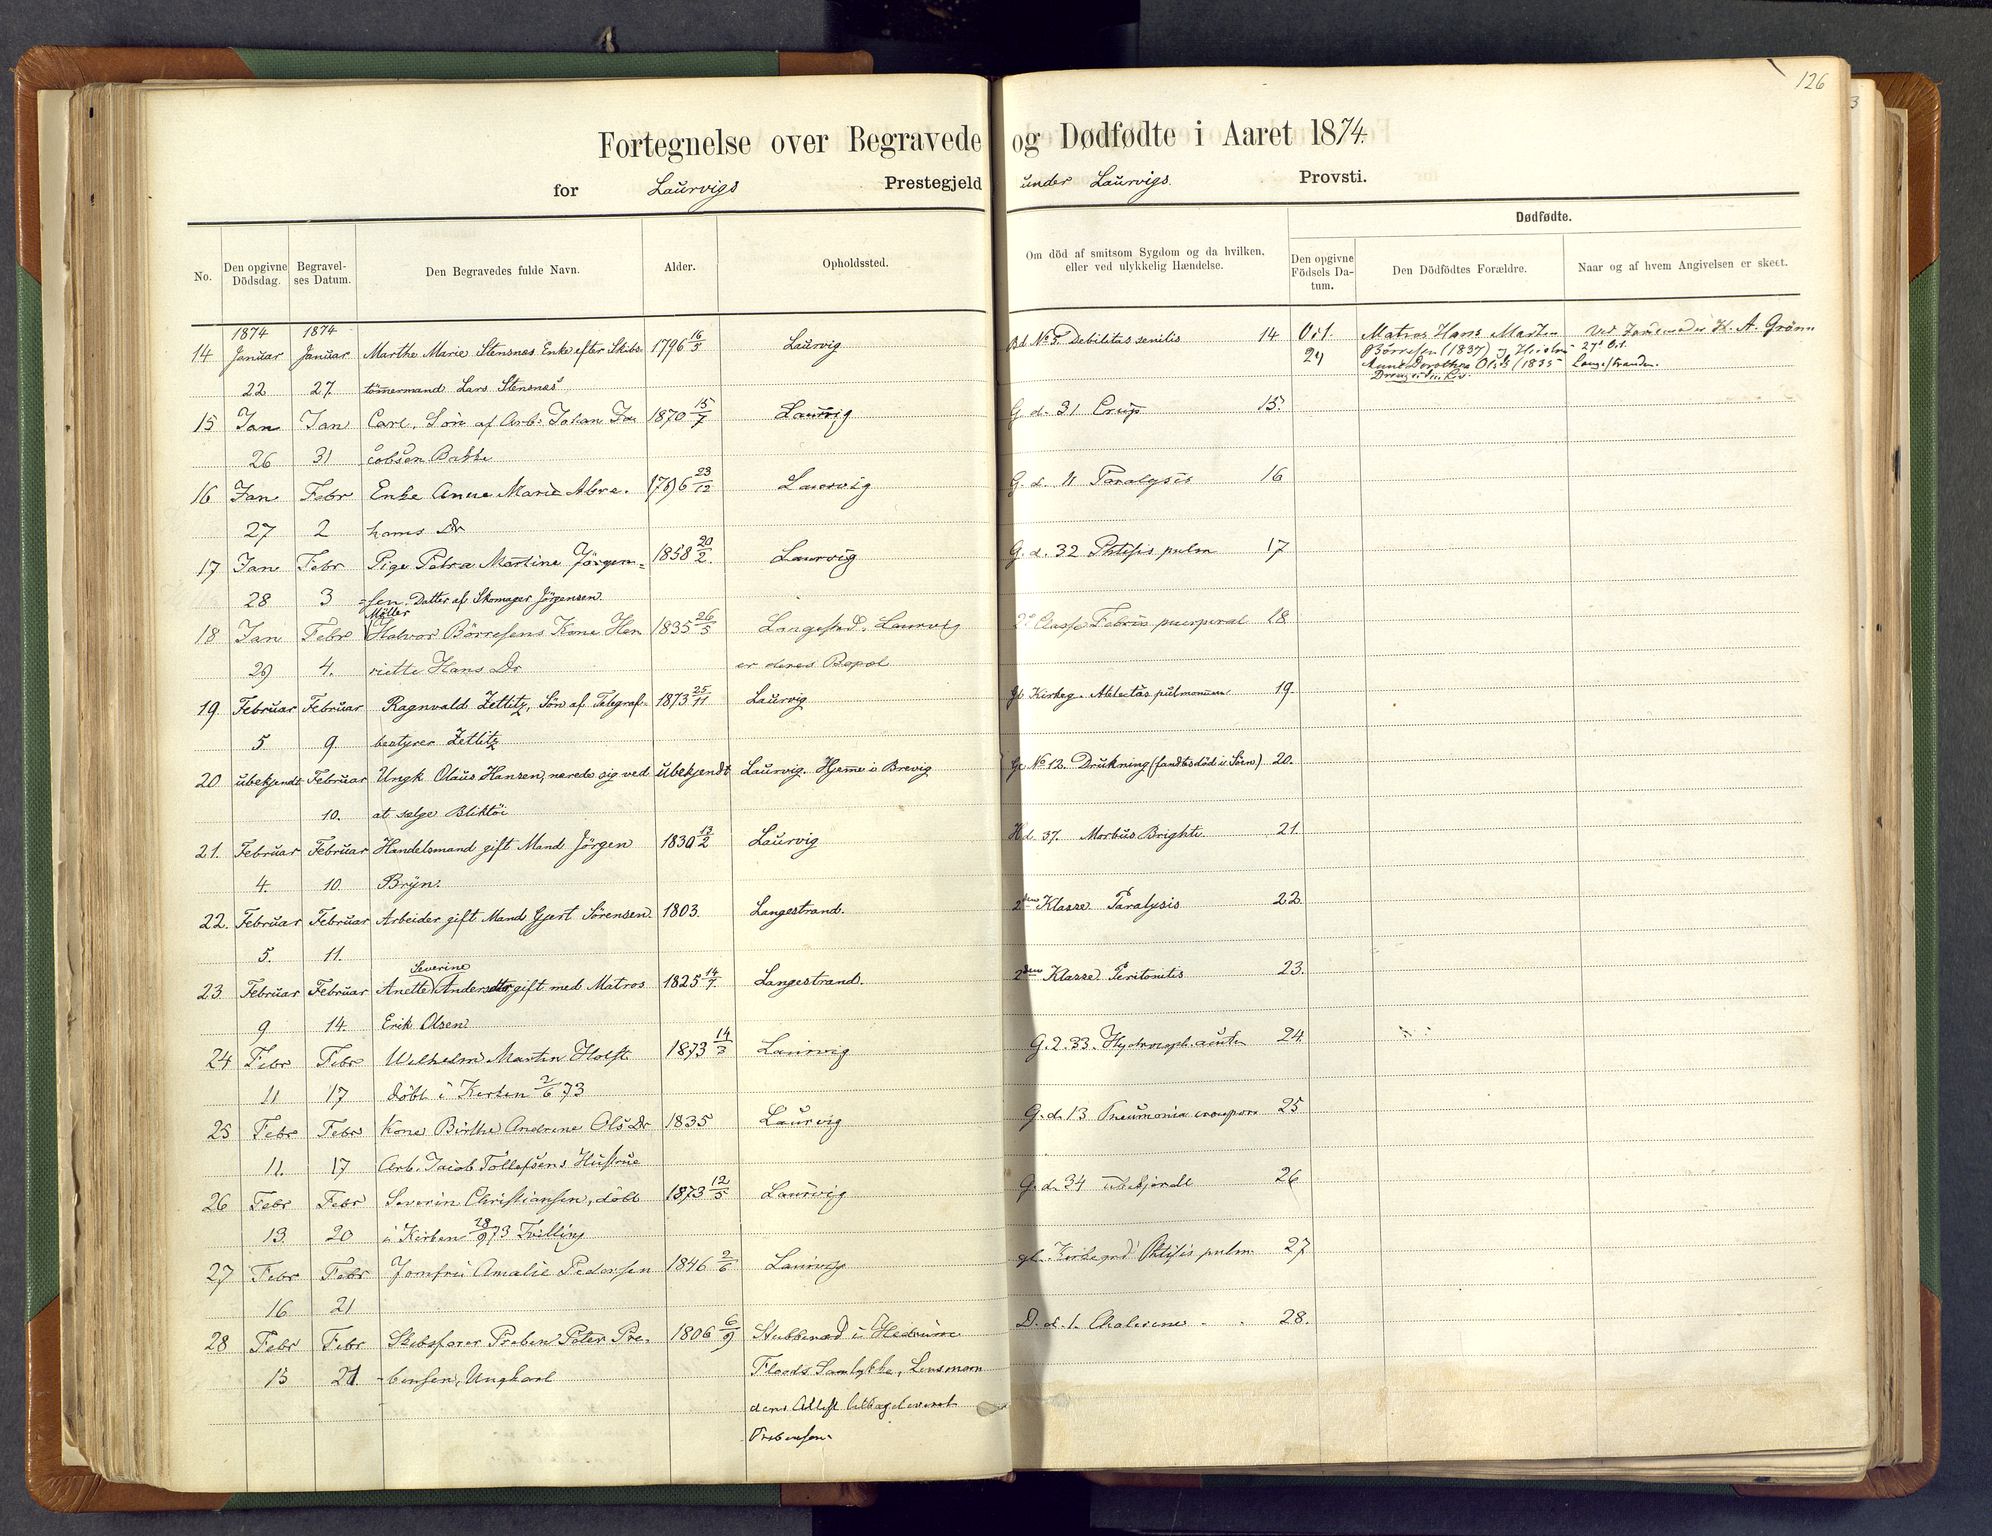 126
Fortegnelse over Begravede og Dødfødte i Aaret 1874.
for Laurvigs Prestegjeld under Laurvigs Provsti.
No.
Den opgivne Dödsdag.
Begravelses Datum.
Den Begravedes fulde Navn.
Alder.
Opholdssted.
Om död af smitsom Sygdom og da hvilken, eller ved ulykkelig Hændelse.
Dødfødte.
Den opgivne Födsels Datum.
Den Dödfödtes Forældre.
Naar og af hvem Angivelsen er skeet.
1874 1874
14 Januar Januar Marthe Marie Stensnæs Enke efter Skibs- 1796 16/3 Laurvig Bd No 5. Debilitas senilis 14 Oct. Matros Hans Martin
22 27. tømmermand Lars Stensnæs 29 Börresen (1837) og Dorothea 1835
15 Jan Jan Carl, Søn af Arb. Johan Ja- 1870 15/7 Laurvig G. d. 31 Crup 15.
26 31 cobsen Bakke
16 Jan Febr Enke Anne Marie Abra- 1796 23/12 Laurvig G. d. 11 Paralysis 16
27 2 hams Dr
17 Jan Febr Pige Petra Martine Jörgen- 1858 20/2. Laurvig G. d. 32 Phtisis pulm 17
28 3 -sen. Datter af Skomager Jörgensen.
Möller
18 Jan Febr Halvor Börresens Kone Hen 1835 26/5 Langestrd. Laurvig 2. Classe Febris puerperal 18
29 4. riette Hans Dr er deres Bopæl
19. Februar Februar Ragnvald Zetlitz, Søn af Telegraf- 1873 25/11 Laurvig Gl Kirkeg. Atelectas pulmonum 19.
5 9. bestyrer Zetlitz
20 ubekjendt Februar Ungk Olaus Hansen, nærede sig ved ubekjendt Laurvig. Hjeme i Brevig No 12. Drukning (fandtes död i Söen) 20.
10. at sælge Bliktöi
21. Februar Februar Handelsmand gift Mand Jörgen 1830 13/2 Laurvig Hd 37. Morbus Brighti 21.
4. 10. Bryn.
22. Februar Februar Arbeider gift Mand Gjert Sörensen 1803. Langestrand. 2den Klasse Paralysis 22.
5. 11.
Severine
23. Februar Februar Anette Andersdtr gift med Matros 1825 14/7 Langestrand. 2den Klasse Peritonitis 23.
9 14. Erik Olsen
24 Febr Febr Wilhelm Martin Holst 1873 14/3 Laurvig G. 2. 33. Hydroceph. acutu 24.
11 17 döbt i Kirken 2/6 73
25 Febr Febr Kone Birthe Andrine Ols Dr 1835 Laurvig G. d. 13 Pneumonia crouposa 25
11. 17 Arb. Jacob Tollefsens Hustrue
26 Febr Febr Severin Christiansen, döbt 1873 12/5 Laurvig G. d. 34 ubekjendt 26
13. 20 i Kirken 28/9 73 Tvilling
27 Febr Febr Jomfru Amalie Pedersen 1846 2/6 Laurvig gl. Kirkegrd Phtisis pulm. 27
16 21
28 Febr Febr Skibsförer Preben Peter Pre- 1806 6/9 i Hedrum D. d. 1. 28.
13 21 -bensen, Ungkarl Floods Samlykke, Lensman
dens Attest
Prebensen.